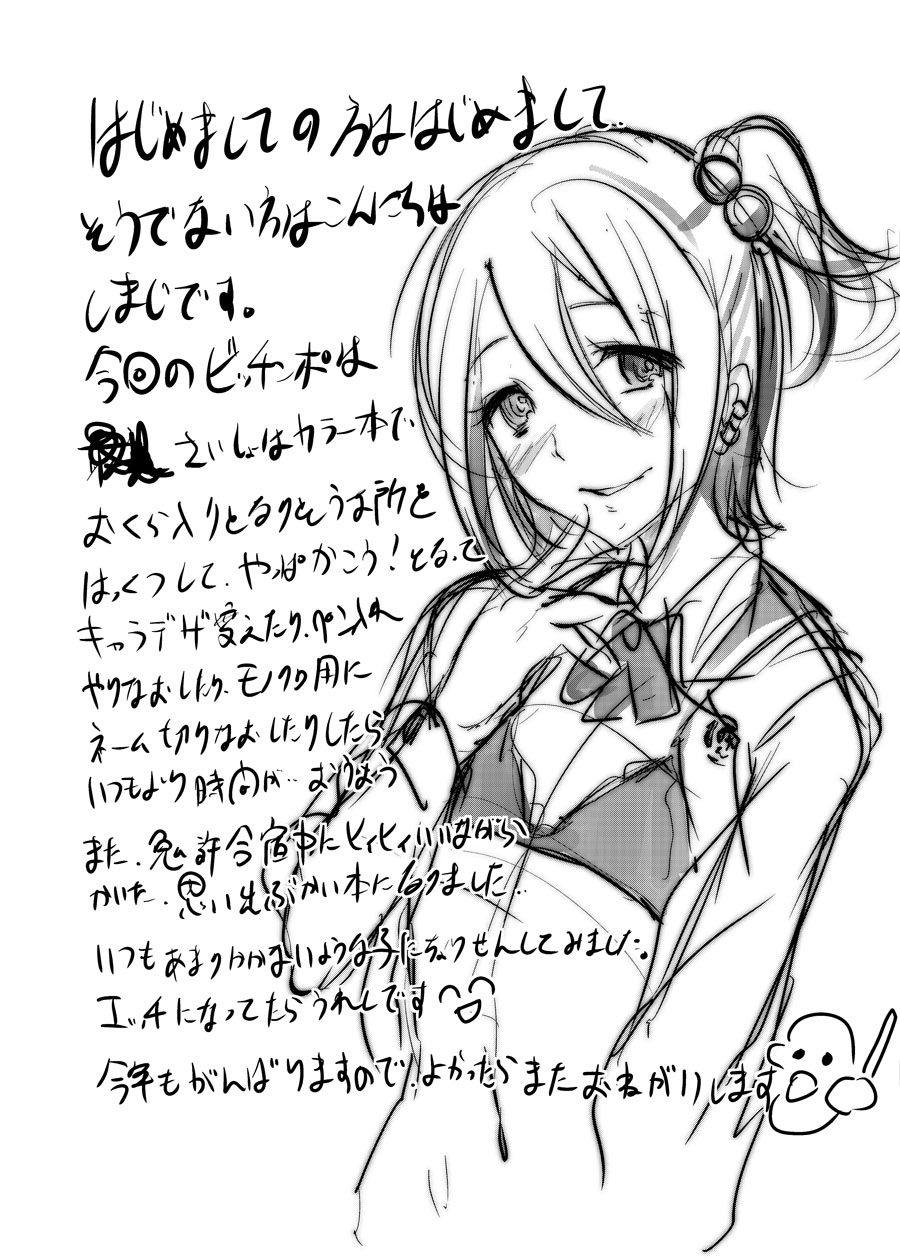 はじめましての方ははじめまして、
そうでない方はこんにちは
しまじです。
今回のビッチンポは
さいしょはカラー本で
おくら入りとなりそうな所を
はっくつして、やっぱかこう!となって
キャラデザ変えたり、ペン入れ
やりなおしたり、モノクロ用に
ネーム切りなおしたりしたら
いつもより時間が‥
また、免許合宿中にヒィヒィいいながら
かいた、思い出ぶかい本になりました‥
いつもあまりかかないような子にちょうせんしてみました。
エッチになってたらうれしいです
今年もがんばりますので、よかったらまたおねがいします